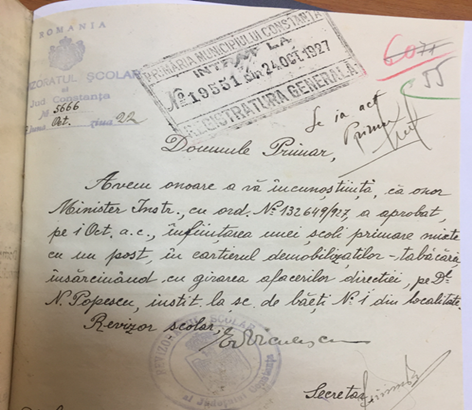 ROMANIA
REVIZORATUL ȘCOLAR
al
Jud Constanța
№ 5666
Luna Oct. ziua 22
PRIMĂRIA MUNICIPIULUI CONSTANȚA
INTRAT LA
№ 19551 din 24 OCT 1927
REGISTRATURA GENERALĂ
55
Se ia act
Primar
Domnule Primar,
Avem onoare a vă încunoștiința, că onor
Minister Instr., cu ord. № 132649/927, a aprobat,
pe 1 Oct. a.c., înființarea unei școli primare mixte
cu un post, în cartierul demobilizaților - tabăcară
însărcinând cu girarea afacerilor direcției, pe Dl.
N. Popescu, instit. la șc. de băeți № 1 din localitate.
Revizor școlar,
REVIZORATUL ȘCOLAR
Secretar,